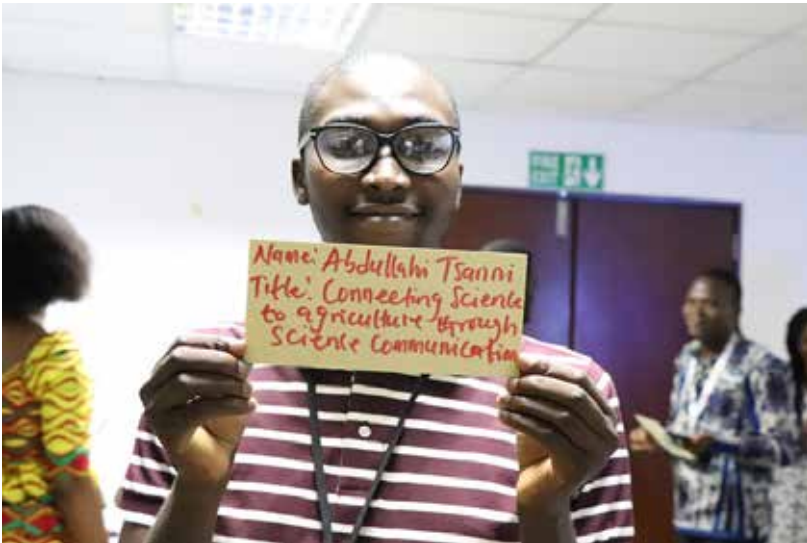 FIRE
EXIT
Name: Abdullahi Tsanni
Title: Connecting Science
to agriculture through
Science Communication